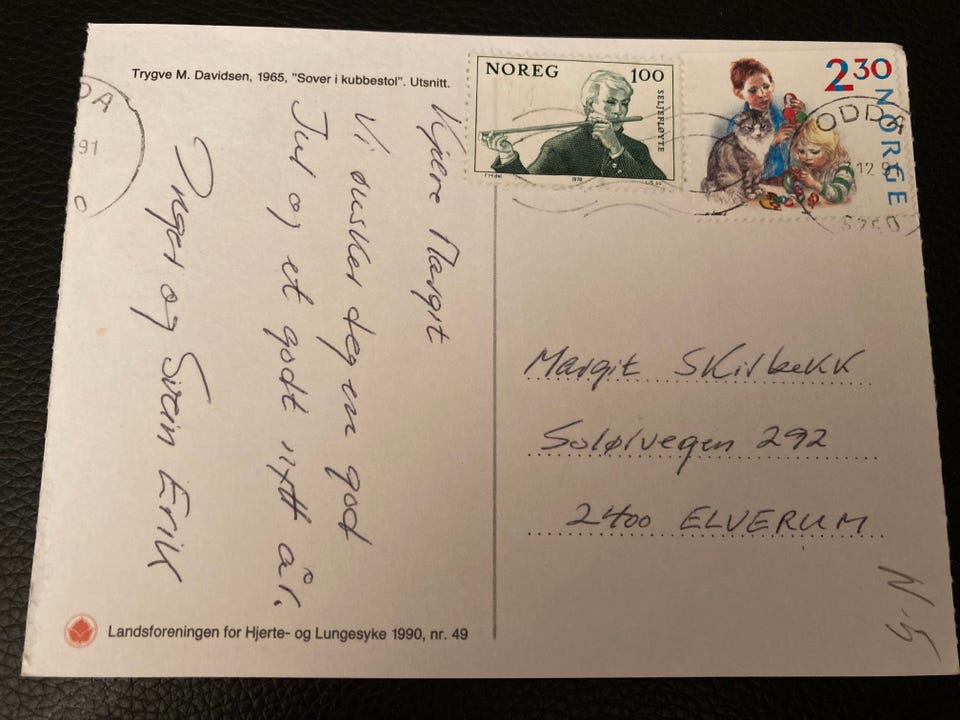 Trygve M. Davidsen, 1965, "Sover i kubbestol". Utsnitt.
NOREG 100
SELJEFLØYTE
1978
2 30
NORGE
ODDA
12 9
DA
91
Kjære Margit
Vi ønsker deg en god
Jul og et godt nytt år.
Inger og Svein Erik
Margit Skirbekk
Solølvegen 292
2400 ELVERUM
Landsforeningen for Hjerte- og Lungesyke 1990, nr. 49